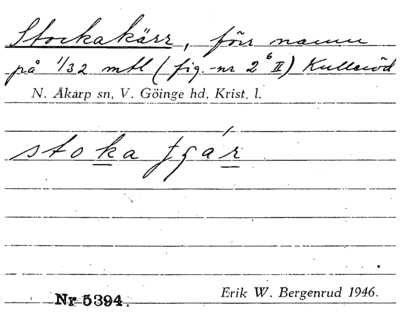 Stockakärr, förr namn
på 1/32 mtl (fig.-nr 2⁶ II) Kulleröd
N. Åkarp sn, V. Göinge hd, Krist. l.
stoka
Nr 5394. Erik W. Bergenrud 1946.